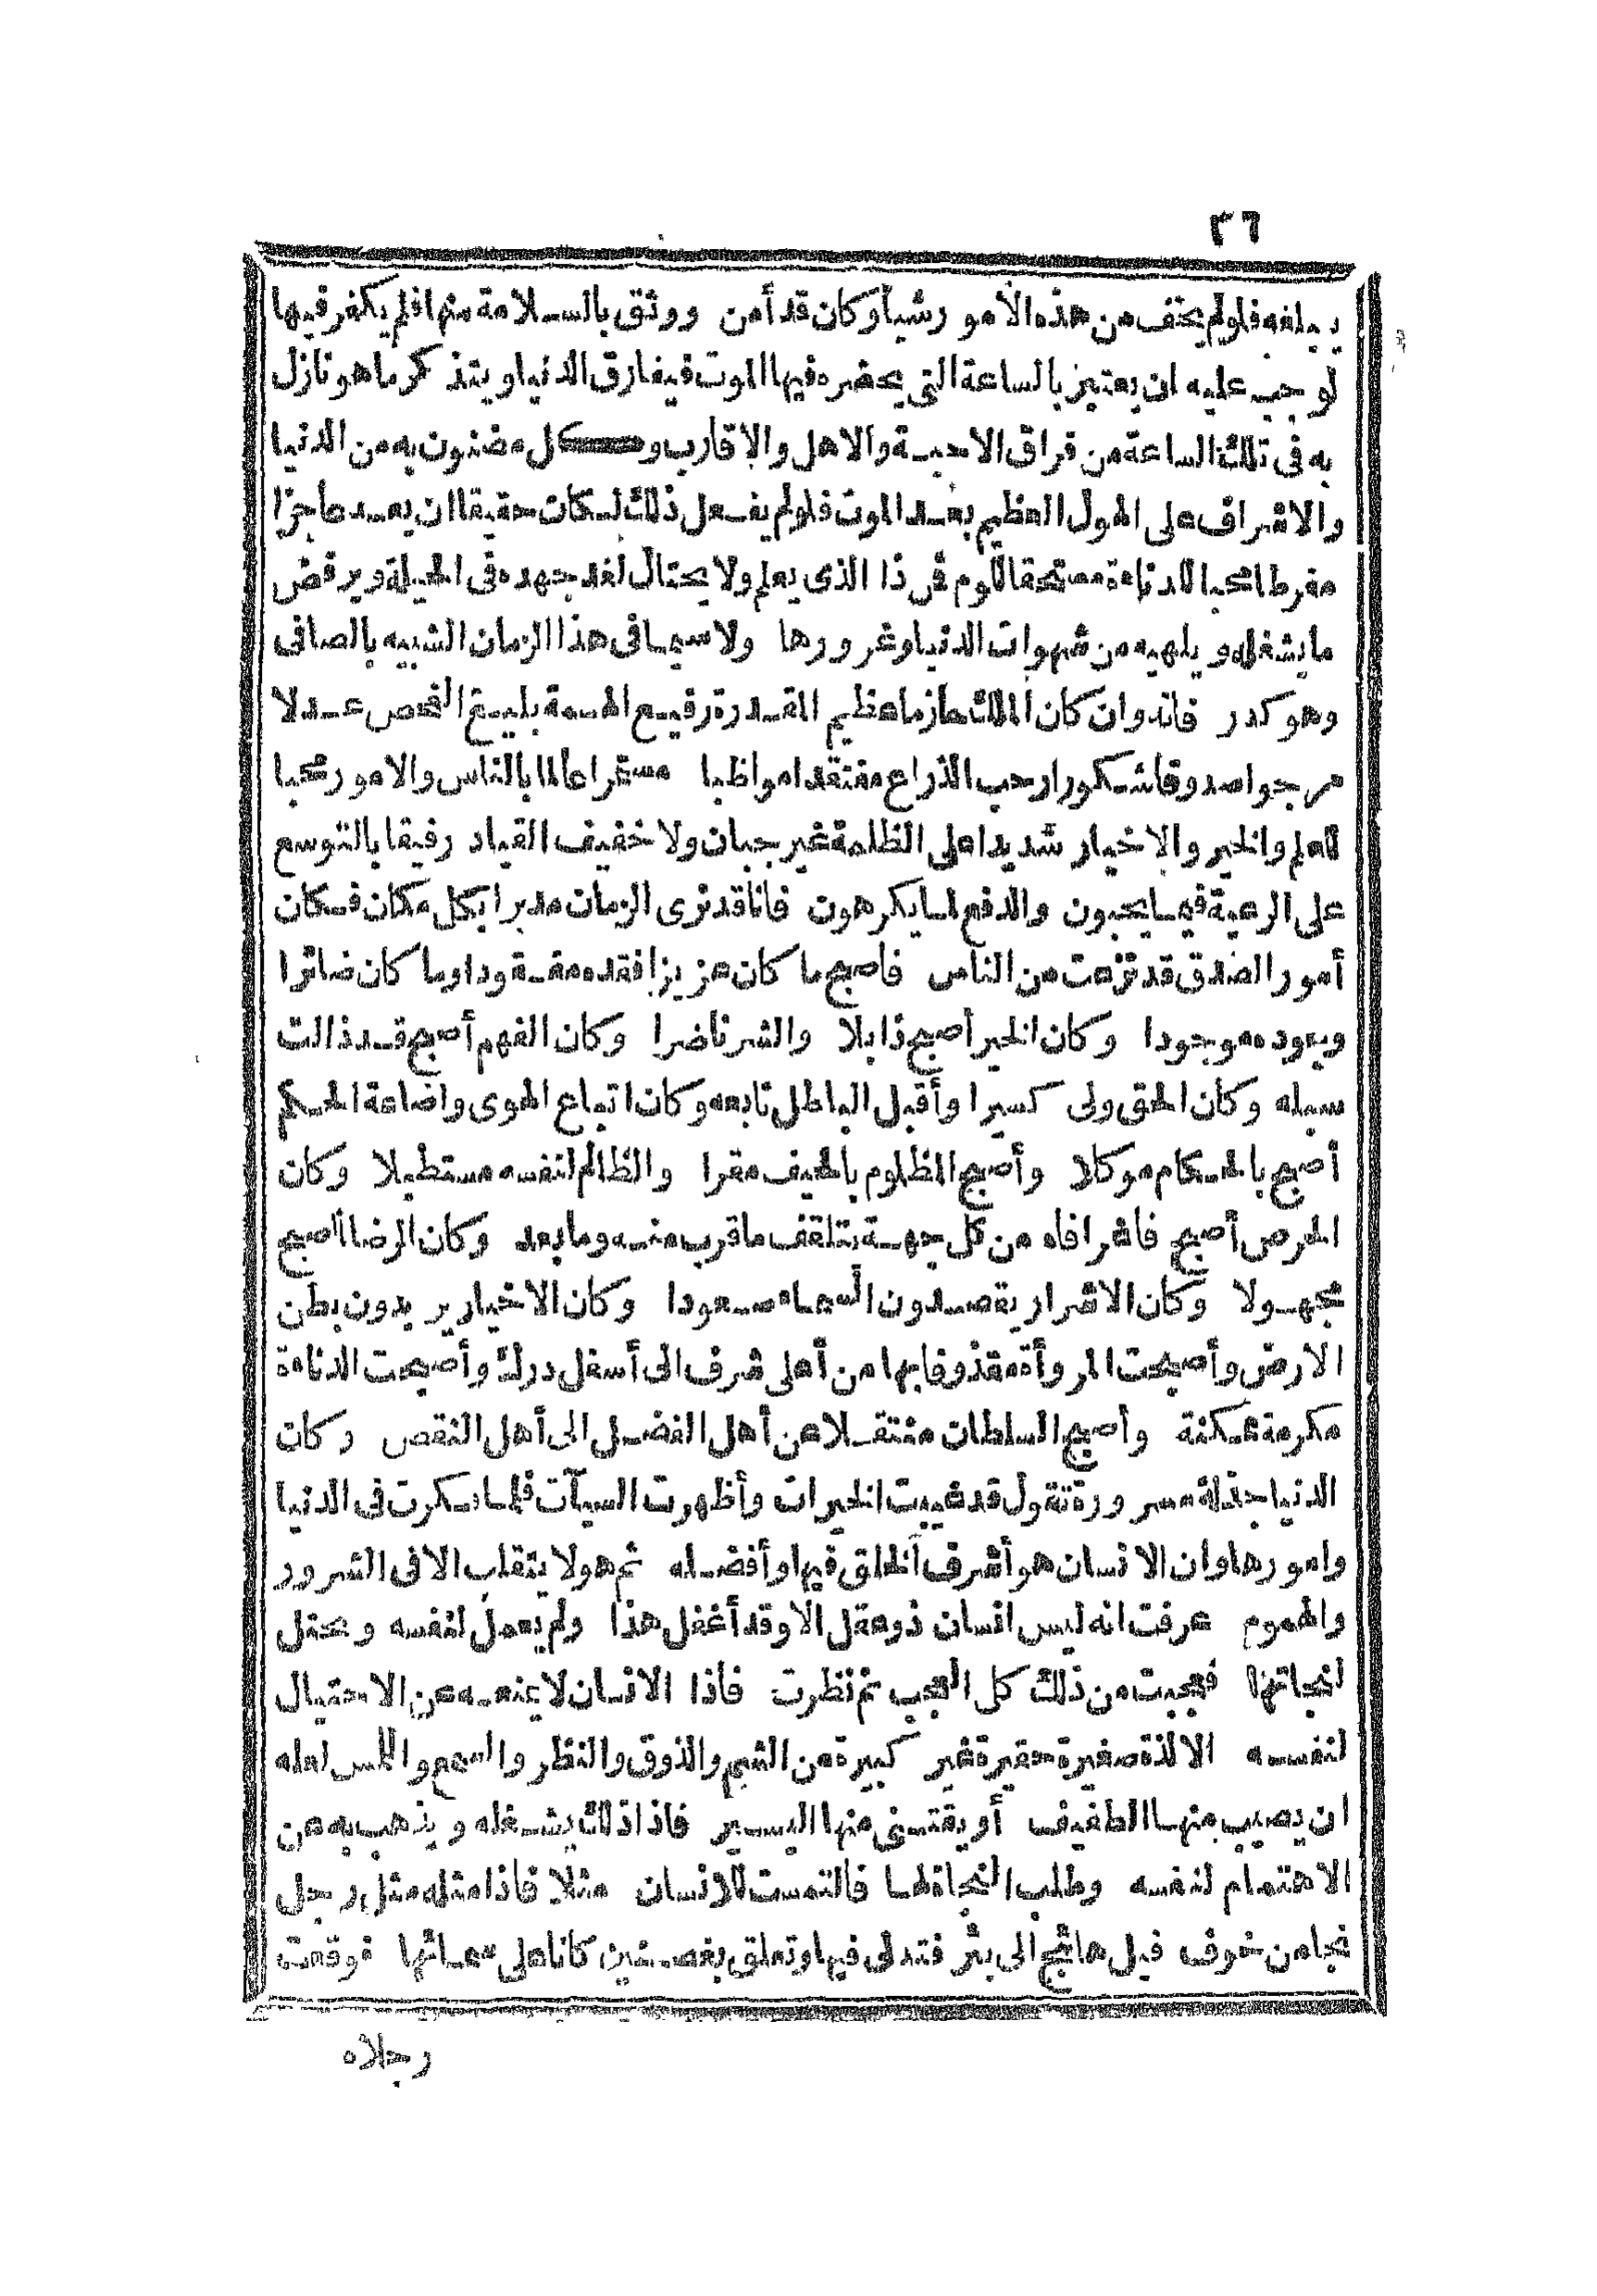 ٣٦
يبلغه فلولم يخف من هذه الأمور شيأ وكان قد أمن ووثق بالسلامة منها فلم يكفر فيها
لوجب عليه ان يعتبر بالساعة التى يحضره فيها الموت فيفارق الدنيا ويتذكر ماهو نازل
به فى تلك الساعة من فراق الاحبة والاهل والاقارب وكل مضنون به من الدنيا
والاشراف على الهول العظيم بعد الموت فلولم يفعل ذلك لكان حقيقا ان يعد عاجزا
مفرطا محبا للدناءة مستحقا للوم فمن ذا الذى يعلم ولا يحتال لغد جهده فى الحيلة ويرفض
مايشغله ويلهيه من شهوات الدنيا وغرورها ولاسيما فى هذا الزمان الشبيه بالصافى
وهو كدر فانه وان كان الملك حازما عظيم القدرة رفيع الهمة بليغ الفحص عدلا
مرجوا صدوقا شكورا رحب الذراع مفتقدا مواظبا مستمرا عالما بالناس والامور محبا
للعلم والخير والاخيار شديدا على الظلمة غير جبان ولا خفيف القياد رفيقا بالتوسع
على الرعية فيما يحبون والدفع لما يكرهون فانا قد نرى الزمان مدبرا بكل مكان فكان
أمور الصدق قد نزعت من الناس فاصبح ما كان عزيزا فقده مفقودا وما كان ضائرا
وجوده موجودا وكان الخير أصبح ذابلا والشر ناضرا وكان الفهم أصبح قد زالت
سبله وكان الحق ولى كسيرا وأقبل الباطل تابعه وكان اتباع الهوى واضاعة الحكم
أصبح بالحكام موكلا وأصبح المظلوم بالحيف مقرا والظالم لنفسه مستطيلا وكان
الحرص أصبح فاغرا فاه من كل جهة يتلقف ماقرب منه وما بعد وكان الرضا أصبح
مجهولا وكان الاشرار يقصدون السماء صعودا وكان الاخيار يريدون بطن
الارض وأصبحت المروأة مقذوفا بها من أعلى شرف الى أسفل درك وأصبحت الدناءة
مكرمة ممكنة وأصبح السلطان منتقلا عن أهل الفضل الى أهل النقص وكان
الدنيا جذلة مسرورة تقول قد غيبت الخيرات وأظهرت السيآت فلما فكرت فى الدنيا
وامورها وان الانسان هو أشرف الخلق فيها وأفضله ثم هو لا يتقلب الا فى الشرور
والهموم عرفت انه ليس انسان ذو عقل الا وقد أغفل هذا ولم يعمل لنفسه ويحتل
لنجاتها فعجبت من ذلك كل العجب ثم نظرت فاذا الانسان لا يمنعه عن الاحتيال
لنفسه الا لذة صغيرة حقيرة غير كبيرة من الشم والذوق والنظر والسمع واللمس لعله
ان يصيب منها الطفيف أو يقتنى منها اليسير فاذا ذلك يشغله ويذهب به عن
الاهتمام لنفسه وطلب النجاة لها فالتمست للانسان مثلا فاذا مثله مثل رجل
نجا من خوف فيل هائج الى بئر فتدلى فيها وتعلق بغصنين كانا على سمائها فوقعت
رجلاه